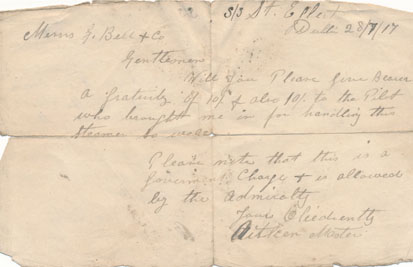 2 S/S St. Egbert
Delta 28/7/17
Messrs G. Bell & Co
Gentlemen
Will you Please give Bearer
a gratuity of 10/- & also 10/- to the Pilot
who brought me in for handling this
Steamer so well
Please note that this is a
Goverment Charge & is allowed
by the Admiralty
Your Obediently
Aitken Master